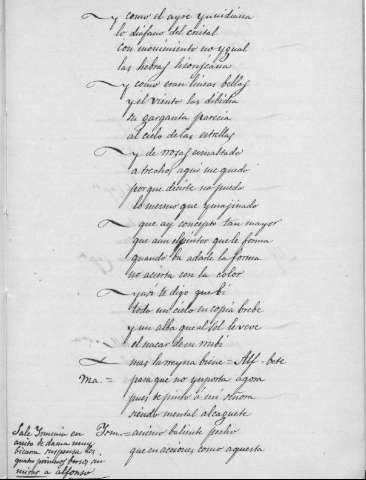 y como el ayre ynvidiava
lo diafano del cristal
con movimiento no ygual
las hebras lisonjeava
y como eran lineas bellas
y el viento las dibidia
su garganta parecia
al cielo de las estrellas
y de rrosas esmaltado
a trechos, aqui me quedo
porque decirte no puedo
lo menos que ymajinado
que ay concepto tan mayor
que aun el pintor que le forma
quando ba a darle la forma
no acierta con la color
y asi te digo que bi
todo un cielo en copia brebe
y un alba que al sol le veve
el nacar de un rrubi
mas la rreyna biene = Alf = bete
Ma. = para que no ynporta agora
pues te pinto a mi señora
siendo mental alcaguete
Sale Ysmenia en
quito de dama muy
bicarra suspensa los
quatro primeros bersos sin
mirar a alfonso
Ysm. = animo baliente pecho
que en acciones como aquesta